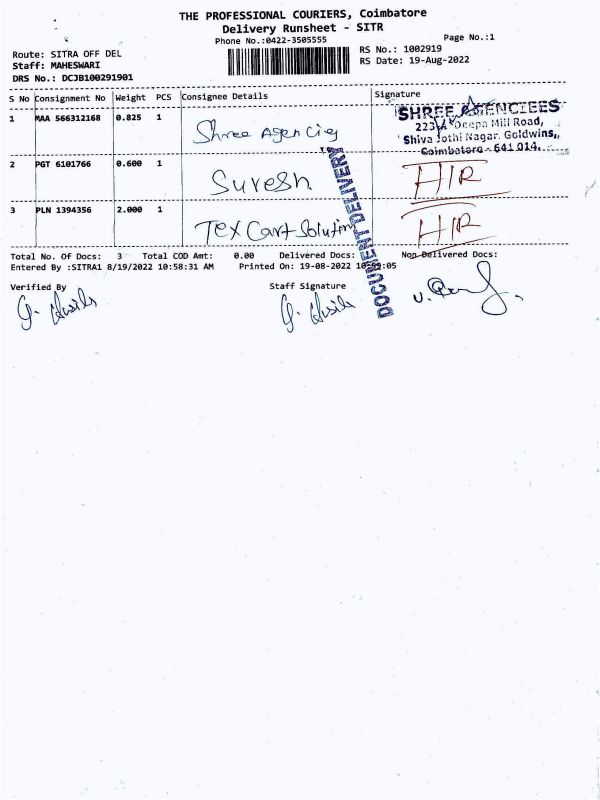 THE PROFESSIONAL COURIERS, Coimbatore
Delivery Runsheet - SITR
Phone No.:0422-3505555
Page No.:1
Route: SITRA OFF DEL
RS No.: 1002919
Staff: MAHESWARI
RS Date: 19-Aug-2022
DRS No.: DCJB100291901
S No Consignment No Weight PCS Consignee Details Signature
1 MAA 566312168 0.825 1 Shree Agencies
SHREE AGENCIEES
223/A Deepa Mill Road,
Shiva Jothi Nagar. Goldwins,,
Coimbatore - 641 014.
2 PGT 6101766 0.600 1 Suresh HIR
3 PLN 1394356 2.000 1 Tex Cart Solution HIR
DOCUMENT DELIVERY
Total No. Of Docs: 3 Total COD Amt: 0.00 Delivered Docs: Non Delivered Docs:
Entered By :SITRA1 8/19/2022 10:58:31 AM Printed On: 19-08-2022 10:59:05
Verified By Staff Signature